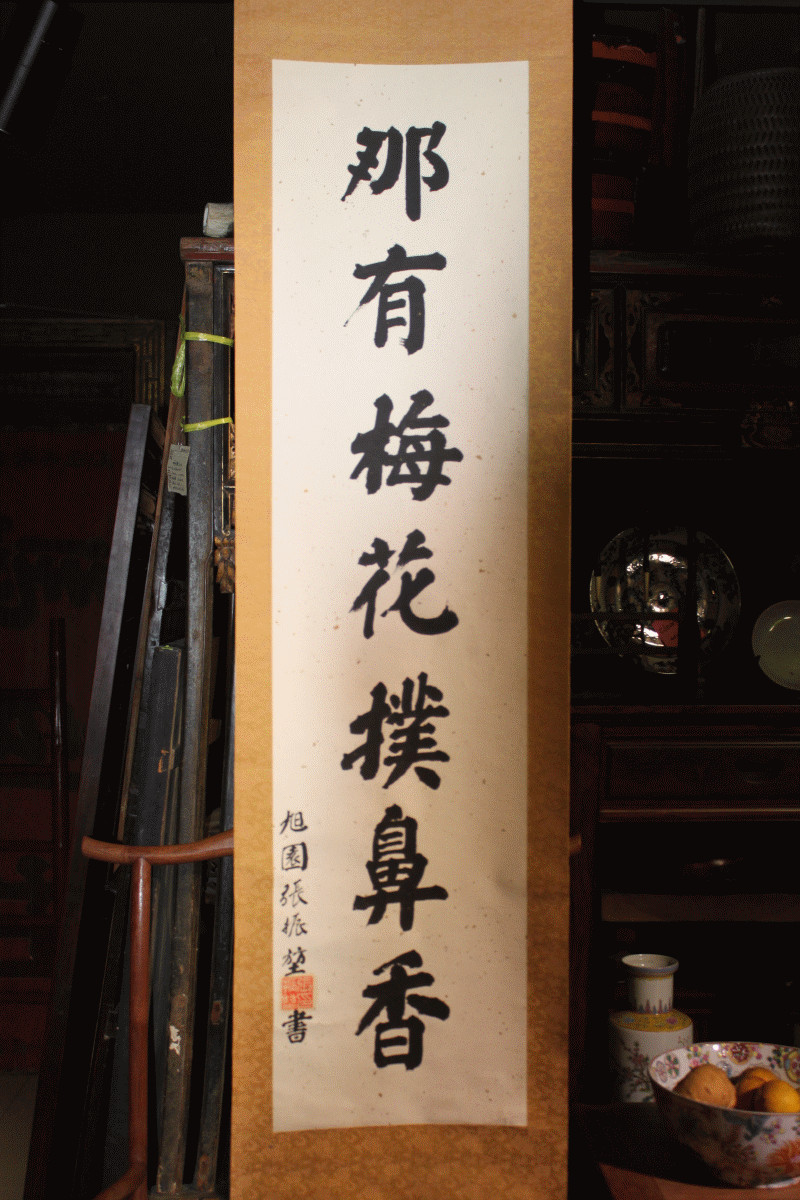 那有梅花撲鼻香
旭園張振堃書